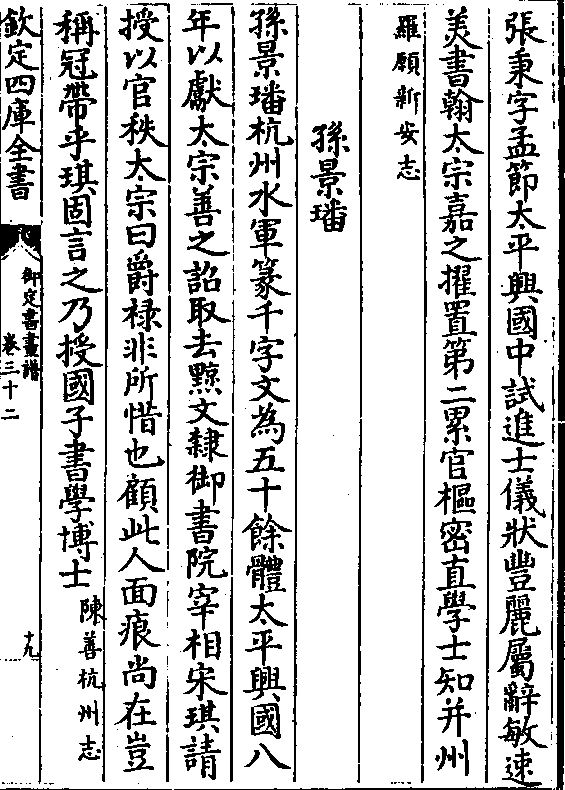 張秉字孟節太平興國中試進士儀狀豐麗屬辭敏速
美書翰太宗嘉之擢置第二累官樞密直學士知并州
羅願新安志
孫景璠
孫景璠杭州水軍篆千字文為五十餘體太平興國八
年以獻太宗善之詔取去黥文隸御書院宰相宋琪請
授以官秩太宗曰爵祿非所惜也顧此人面痕尚在豈
稱冠帶乎琪固言之乃授國子書學博士陳善杭州志
欽定四庫全書
御定書畫譜
卷三十二
十九